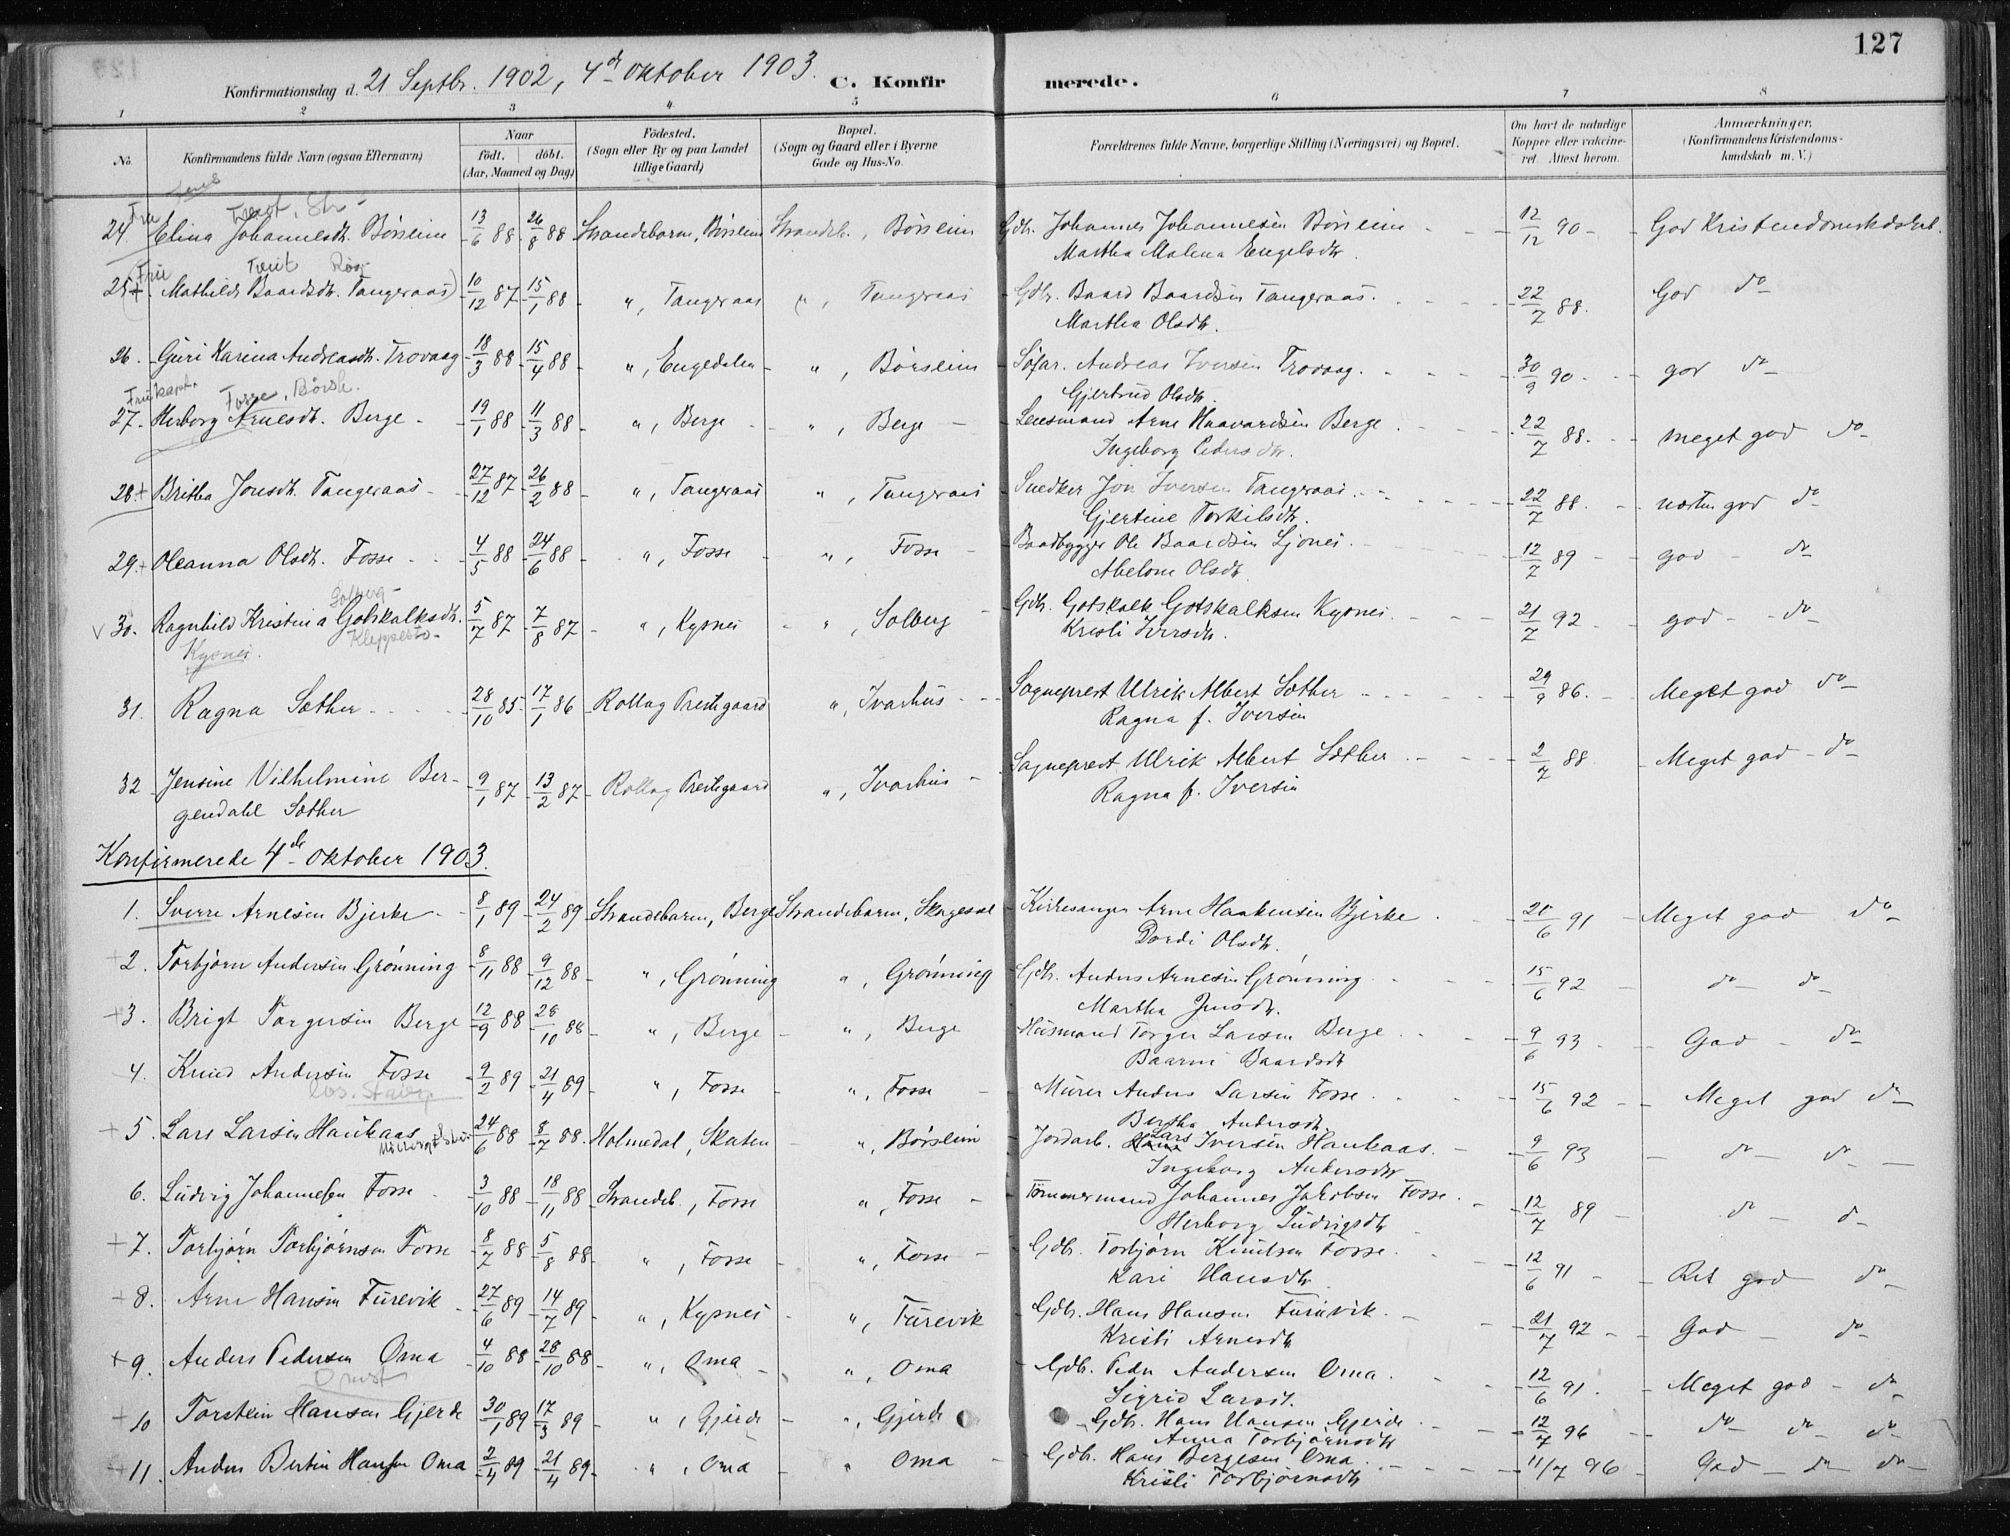 127
Konfirmationsdag d. 21 Septbr. 1902, 4de Oktober 1903. C. Konfir merede.
1 2 3 4 5 6 7 8
No. Konfirmandens fulde Navn (ogsaa Efternavn) Naar født. døbt. (Aar, Maaned og Dag) Fødested. (Sogn eller By og paa Landet tillige Gaard) Bopæl. (Sogn og Gaard eller i Byerne Gade og Hus-No. Forældrenes fulde Navne, borgerlige Stilling (Næringsvei) og Bopæl. Om havt de naturlige Kopper eller vakcineret. Attest herom. Anmærkninger. (Konfirmandens Kristendomskundskab m. V.)
24. Elina Johannesdt. Børsheim 13/6 88 26/8 88 Strandebarm, Børsheim Strandeb., Børsheim Gdb. Johannes Johannesen Børsheim 12/12 90 God Kristendomskdskb.
Martha Malena Engelsdtr.
25 Mathilde Baardsdt. Tangeraas 10/12 87 15/1 88 ", Tangeraas ", Tangeraas Gdbr. Baard Baardsen Tangeraas. 22/7 88. God do
Martha Olsdtr.
26. Guri Karina Andreasdt. Trovaag 18/3 88 15/4 88 ", Engedalen ", Børsheim Søfar. Andreas Iversen Trovaag. 30/9 90. god do
Gjertrud Olsdtr.
Fosse, Børsh.
27. Herborg Arnesdt. Berge 19/1 88 11/3 88 ", Berge ", Berge Lensmand Arne Haavardsen Berge 22/7 88. meget god do
Ingeborg Pedersdtr.
28+ Britha Jonsdt. Tangeraas 27/12 87 26/2 88 ", Tangeraas ", Tangeraas Snedker Jon Iversen Tangeraas 22/7 88 næsten god do
Gjertine Torkilsdtr.
29+ Oleanna Olsdt. Fosse 4/5 88 24/6 88 ", Fosse ", Fosse Baadbygger Ole Baardsen Ljones 12/7 89 god do
Abelone Olsdtr.
Solberg
v 30. Ragnhild Kristina Gotskalksdt. 5/7 87 7/8 87 ", Kysnes ", Solberg Gdb. Gotskalk Gotskalksen Kysnes. 21/7 92 god do
Kysnes. Kristi Iversdtr.
31. Ragna Sæther 28/10 85 17/1 86 Rollag Prestegaard ", Ivarhus Sogneprest Ulrik Albert Sæther 29/9 86. Meget god do
Ragna f. Iversen
32 Jensine Vilhelmine Ber- 9/1 87 13/2 87 Rollag Prestegaard ", Ivarhus Sogneprest Ulrik Albert Sæther 2/7 88 Meget god do
gendahl Sæther Ragna f. Iversen
Konfirmerede 4de Oktober 1903.
1. Sverre Arnesen Bjerke 8/1 89 24/2 89 Strandebarm, Berge Strandebarm, Skogesæl Kirkesanger Arne Haakensen Bjerke 20/6 91 Meget god do
Dordi Olsdtr.
+ 2. Torbjørn Andersen Grønning 8/11 88 9/12 88 ", Grønning ", Grønning Gdb. Anders Arnesen Grønning 15/6 92 do do
Martha Jensdtr.
+ 3. Brigt Torgersen Berge 12/9 88 28/10 88 ", Berge ", Berge Husmand Torger Larsen Berge 9/6 93 God do
Baarni Baardsdt
4. Knud Andersen Fosse 9/2 89 21/4 89 ", Fosse ", Fosse Murer Anders Larsen Fosse 15/6 92 Meget god do
Bertha Andersdt.
+ 5. Lars Larsen Haukaas 24/6 88 8/7 88. Holmedal, Skaten ", Børsheim Jordarb. Lars Iversen Haukaas. 9/6 93 do do
Ingeborg Andersdtr
6. Ludvig Johannesen Fosse 3/10 88 18/11 88 Strandeb., Fosse ", Fosse Tømmermand Johannes Jakobsen Fosse. 12/7 89 do d
Herborg Ludvigsdtr
+ 7. Torbjørn Torbjørnsen Fosse 8/7 88 5/8 88 ", Fosse ", Fosse Gdb. Torbjørn Knutsen Fosse. 12/6 91 Ret god do
Kari Hansdtr
8. Arne Hansen Furevik 27/6 89 14/7 89 ", Kysnes ", Furevik Gdb. Hans Hansen Furevik. 21/7 92 God do
Kristi Arnesdtr
+ 9. Anders Pedersen Oma 4/10 88 28/10 88 ", Oma ", Oma Gdb. Peder Andersen Oma. 12/6 91. Meget god do
Sigrid Larsdt.
+ 10 Torstein Hansen Gjerde 30/1 89 17/3 89 ", Gjerde ", Gjerde Gdb. Hans Hansen Gjerde 12/7 96 do do do
Anna Torbjørnsdtr
+ 11. Anders Bertin Hansen Oma 2/4 89 21/4 89 ", Oma " Oma Gdb. Hans Bergesen Oma. 11/7 96 God do do
Kristi Torbjørnsdtr